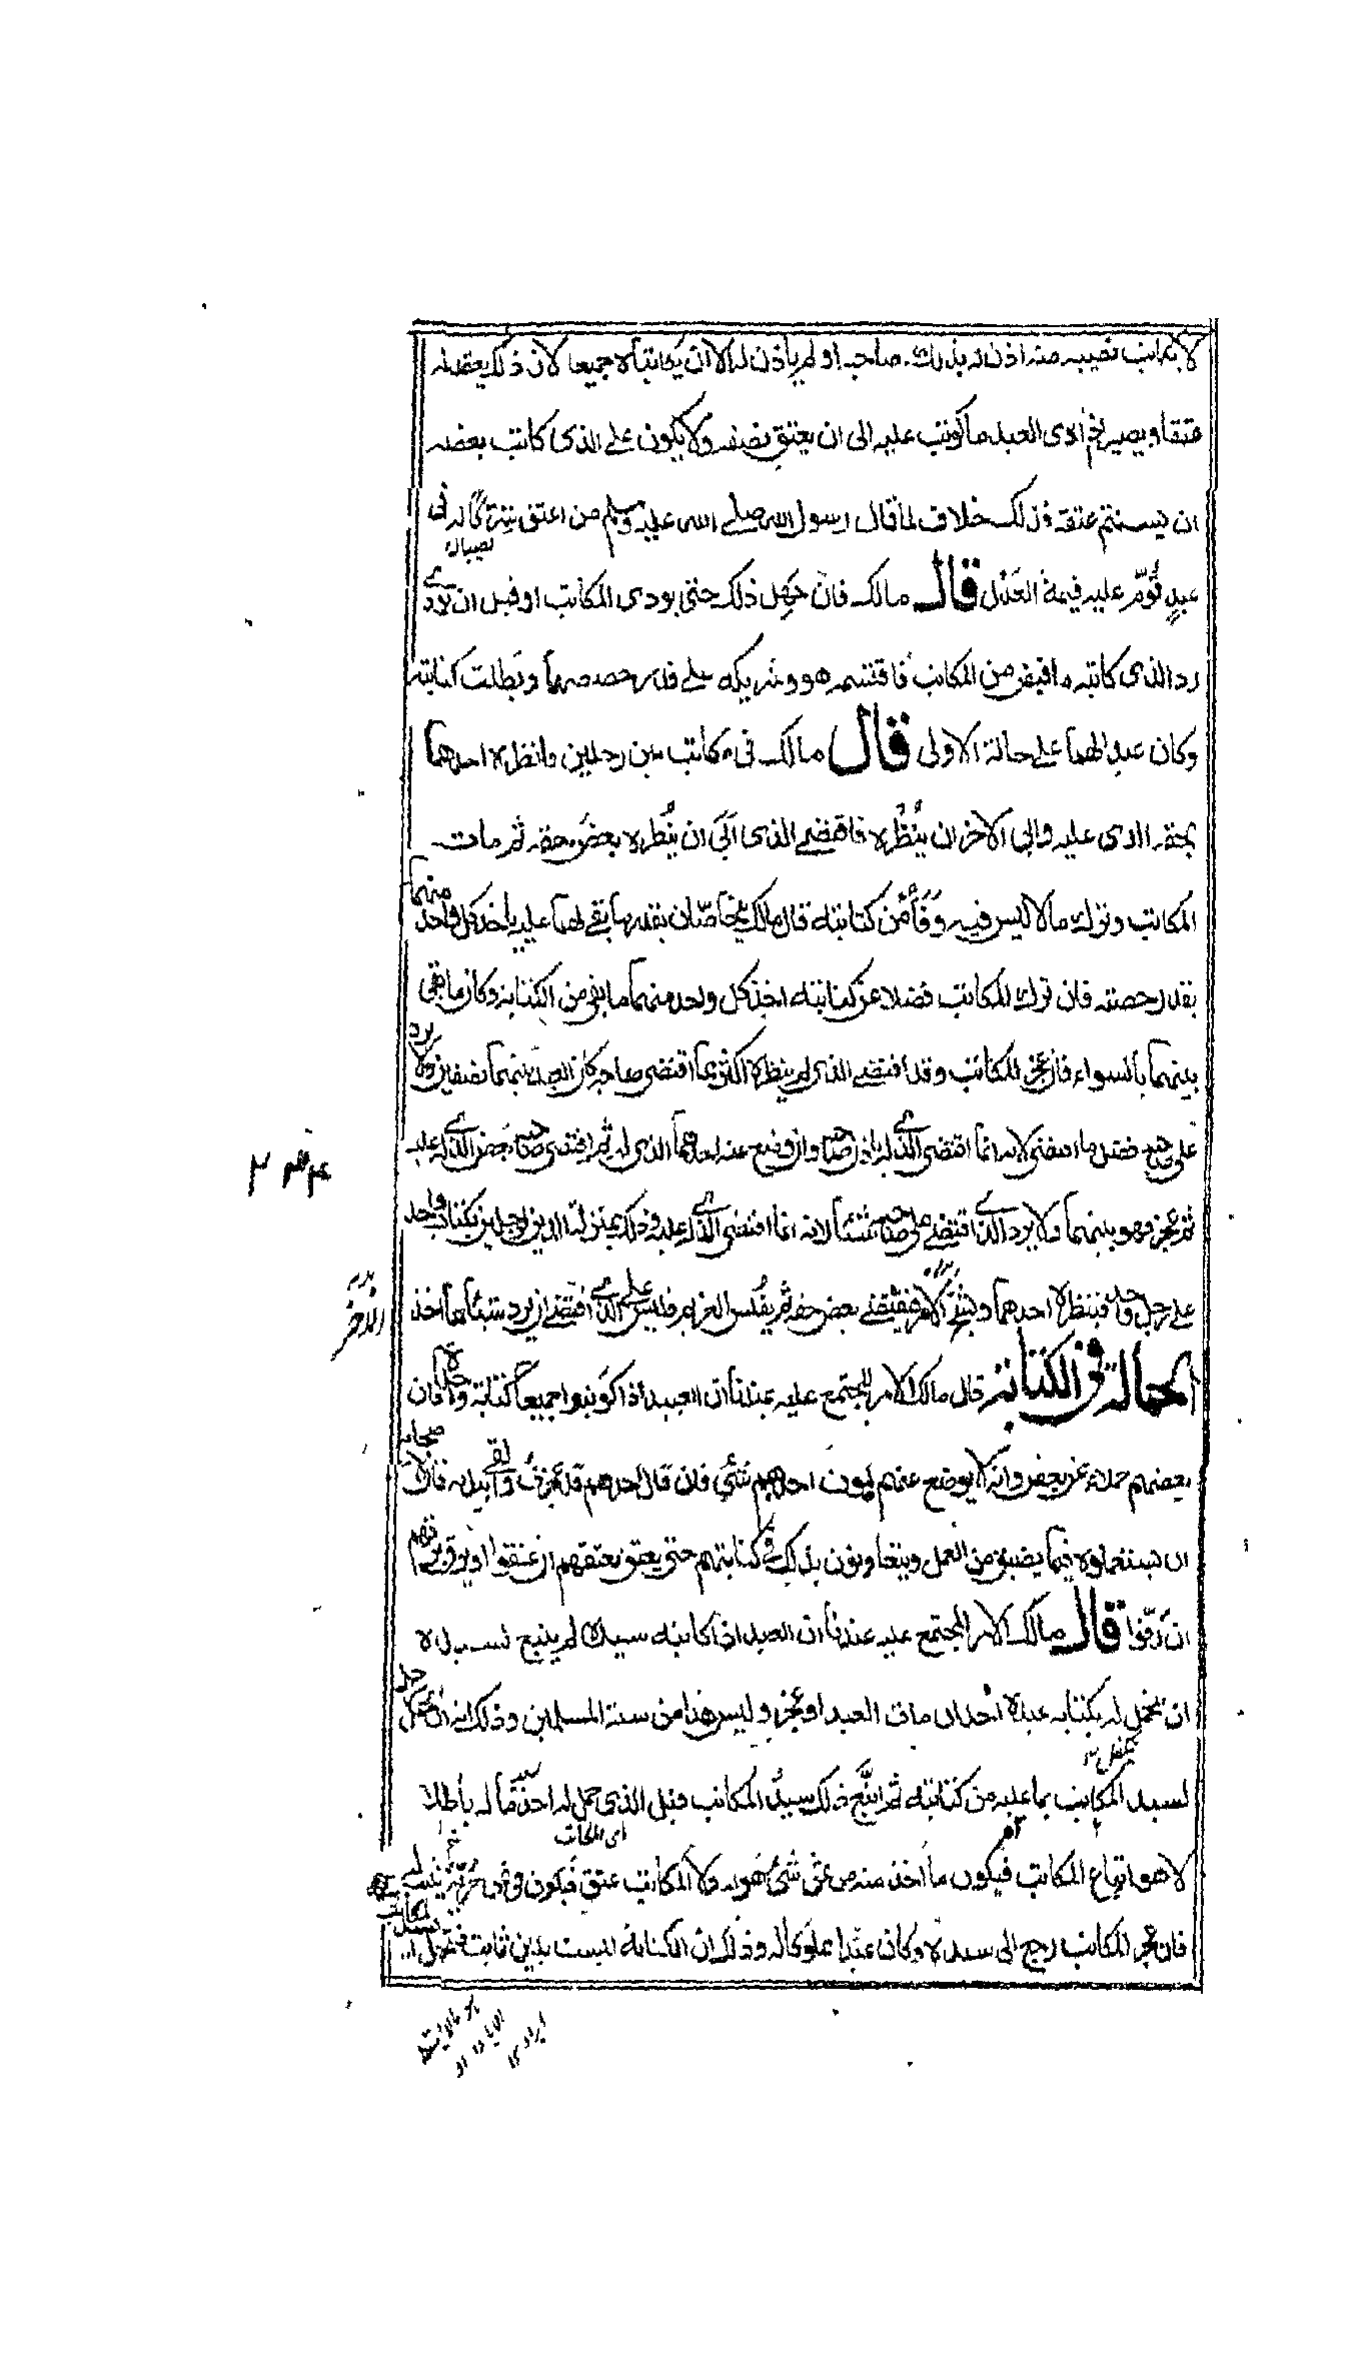 لا يكاتب نصيبه منه اذن له بذلك صاحبه او لم ياذن له الا ان يكاتباه جميعا لان ذلك يعقد له
عتقا ويصير اذا ادى العبد ما كوتب عليه الى ان يعتق نصفه ولا يكون على الذى كاتب بعضه
ان يستتم عتقه فذلك خلاف لما قال رسول الله صلى الله عليه وسلم من اعتق شركا له فى
عبد قوم عليه قيمة العدل قال مالك فان جهل ذلك حتى يودى المكاتب او قبل ان يودى
رد الذى كاتبه ما قبض من المكاتب فاقتسمه هو وشريكه على قدر حصصهما وبطلت كتابته
وكان عبدا لهما على حالته الاولى قال مالك فى مكاتب بين رجلين فانظره احدهما
بحقه الذى عليه وابى الاخر ان ينظره فاقتضى الذى ابى ان ينظره بعض حقه ثم مات
المكاتب وترك مالا ليس فيه وفاء من كتابته قال مالك يتحاصان بقدر ما بقى لهما عليه ياخذ كل واحد منهما
بقدر حصته فان ترك المكاتب فضلا عن كتابته اخذ كل واحد منهما ما بقى من الكتابة وكان ما بقى
بينهما بالسواء فان عجز المكاتب وقد اقتضى الذى لم ينظره اكثر مما اقتضى صاحبه كان العبد بينهما نصفين ولا يرد
على صاحبه فضل ما اقتضى لانه انما اقتضى الذى له باذن صاحبه وان وضع عنه احدهما الذى له ثم اقتضى صاحبه بعض الذى له عليه
ثم عجز فهو بينهما ولا يرد الذى اقتضى على صاحبه شيئا لانه انما اقتضى الذى له عليه وذلك بمنزلة الدين للرجلين بكتاب واحد
على رجل واحد فينظره احدهما ويشح الاخر فيقتضى بعض حقه ثم يفلس الغريم فليس على الذى اقتضى ان يرد شيئا مما اخذ
الحمالة فى الكتابة قال مالك الامر المجتمع عليه عندنا ان العبيد اذا كوتبوا جميعا كتابة واحدة فان
بعضهم حملاء عن بعض وانه لا يوضع عنهم لموت احدهم شئ فان قال احدهم قد عجزت والقى بيديه فان لاصحابه
ان يستعملوه فيما يطيق من العمل ويتعاونون بذلك فى كتابتهم حتى يعتق بعتقهم ان عتقوا او يرق برقهم
ان رقوا قال مالك الامر المجتمع عليه عندنا ان العبد اذا كاتبه سيده لم ينبغ لسيده
ان يتحمل له بكتابة عبده احد ان مات العبد او عجز وليس هذا من سنة المسلمين وذلك انه ان تحمل رجل
لسيد المكاتب بما عليه من كتابته ثم اتبع ذلك سيد المكاتب قبل الذى تحمل له اخذ ماله باطلا
لا هو ابتاع المكاتب فيكون ما اخذ منه من ثمن شئ هو له ولا المكاتب عتق فيكون فى ثمن حرمة ثبتت له
فان عجز المكاتب رجع الى سيده وكان عبدا مملوكا له وذلك ان الكتابة ليست بدين ثابت فتحمل لسيد المكاتب